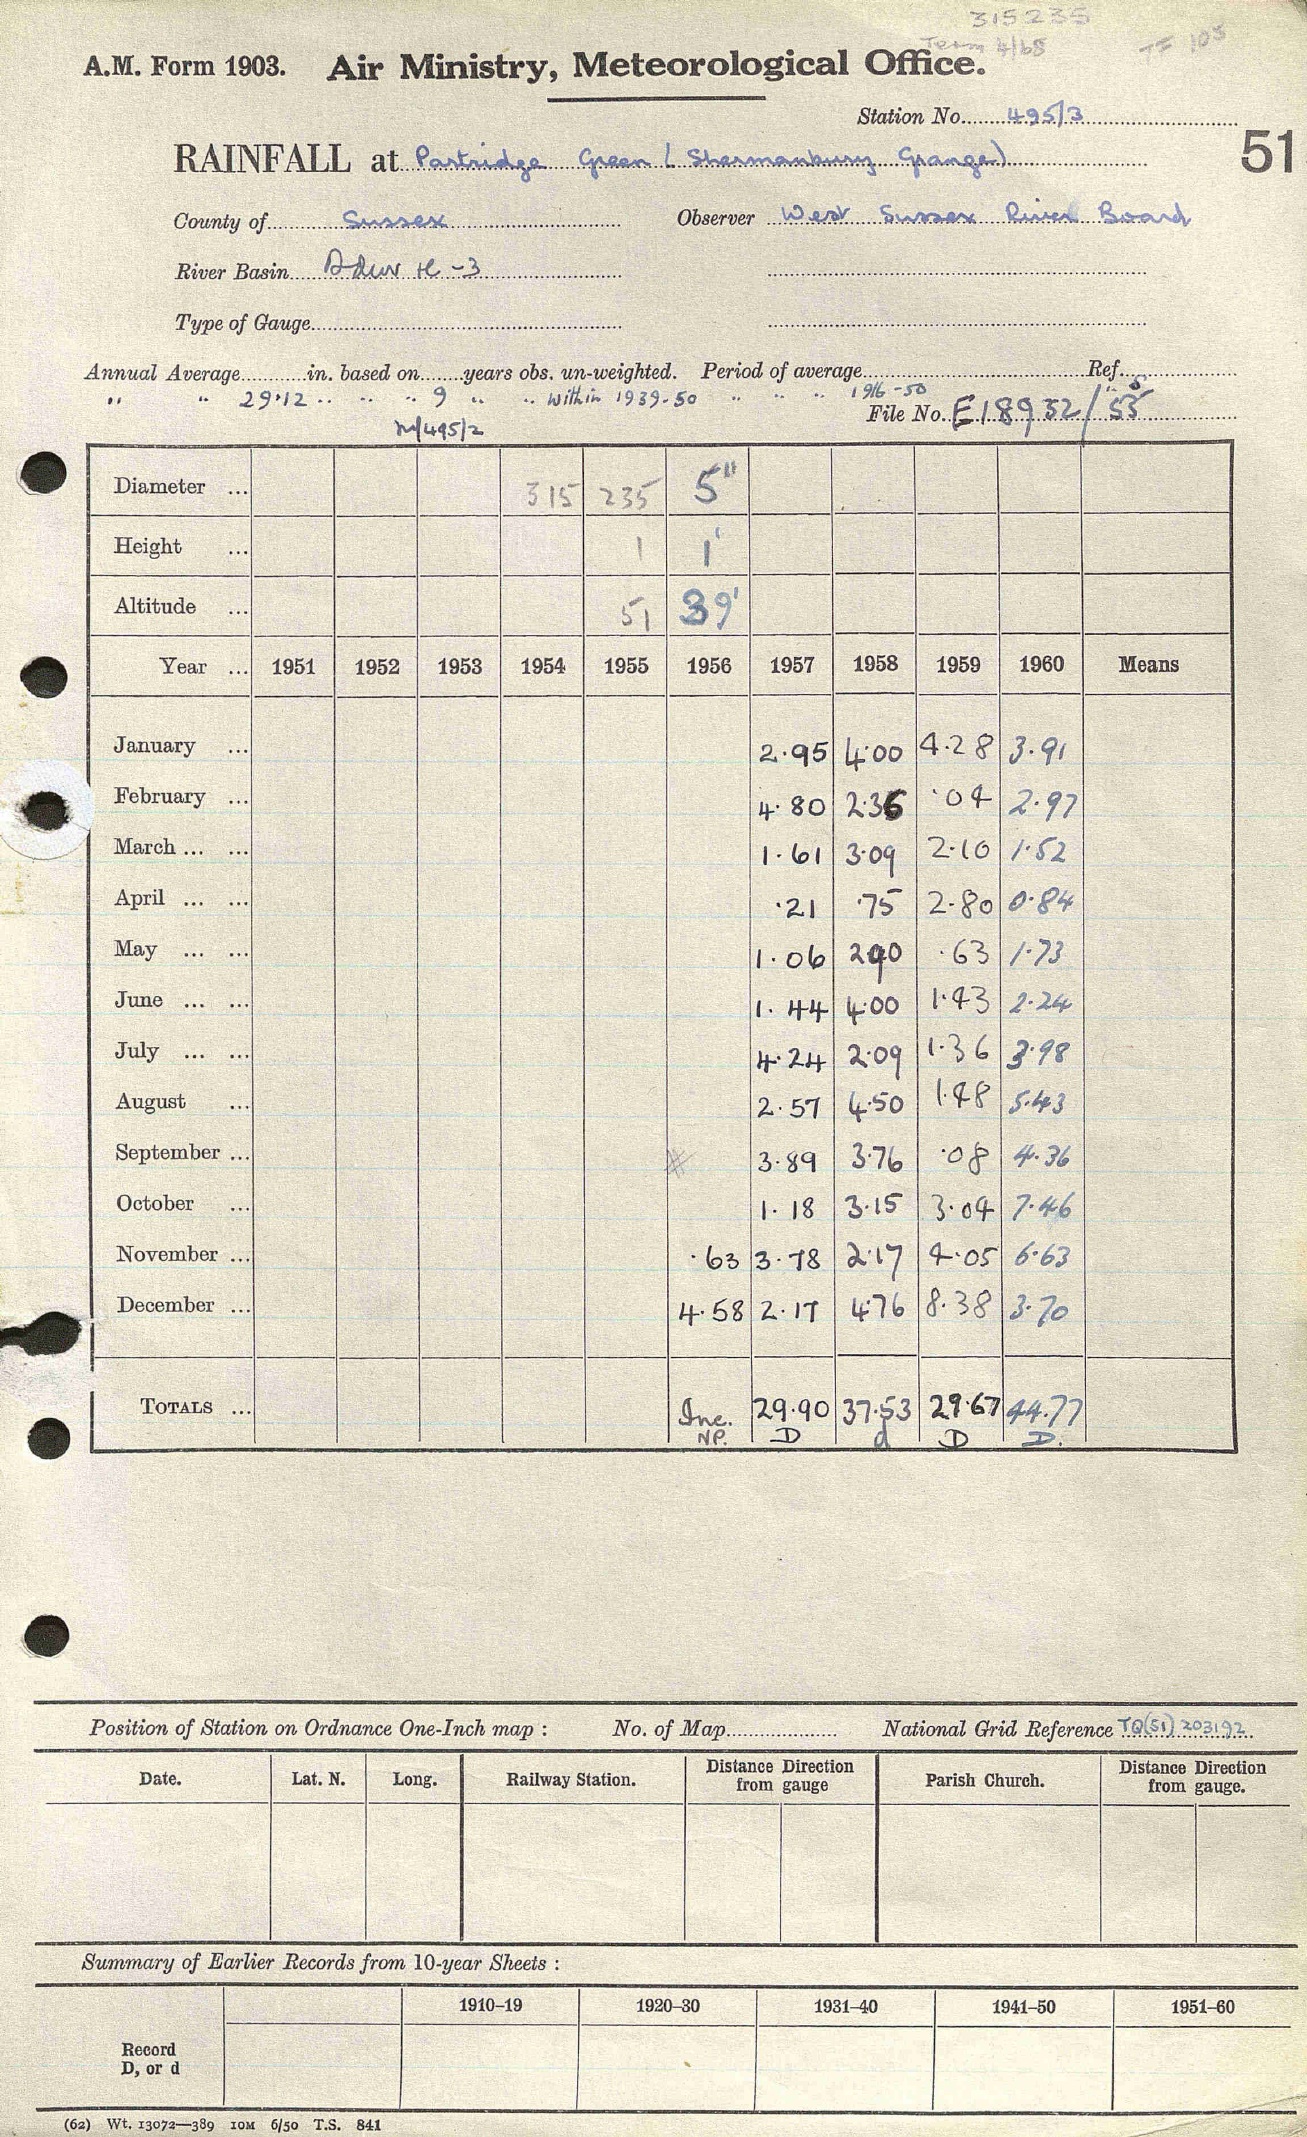 315235
Term 4/68
TF 105
A.M. Form 1903. Air Ministry, Meteorological Office.
Station No. 495/3
51
RAINFALL at Partridge Green (Shermanbury Grange)
County of Sussex Observer West Sussex River Board
River Basin Adur H-3
Type of Gauge
Annual Average in. based on years obs. un-weighted. Period of average Ref.
" " 29.12 " " " 9 " " " within 1939-50 " " " 1916-50
File No. E18932/55
N/495/2
Diameter ... 315 235 5"
Height ... 1 1'
Altitude ... 51 39'
Year ... 1951 1952 1953 1954 1955 1956 1957 1958 1959 1960 Means
January ... 2.95 4.00 4.28 3.91
February ... 4.80 2.36 .04 2.97
March ... ... 1.61 3.09 2.10 1.52
April ... ... .21 .75 2.80 0.84
May ... ... 1.06 2.90 .63 1.73
June ... ... 1.44 4.00 1.43 2.24
July ... ... 4.24 2.09 1.36 3.98
August ... 2.57 4.50 1.48 5.43
September ... 3.89 3.76 .08 4.36
October ... 1.18 3.15 3.04 7.46
November ... .63 3.78 2.17 4.05 6.63
December ... 4.58 2.17 4.76 8.38 3.70
TOTALS ... Inc. 29.90 37.53 29.67 44.77
NP. D d D D.
Position of Station on Ordnance One-Inch map : No. of Map National Grid Reference TQ(51) 203192
Date. Lat. N. Long. Railway Station. Distance from gauge Direction Parish Church. Distance from gauge. Direction
Summary of Earlier Records from 10-year Sheets :
1910–19 1920–30 1931–40 1941–50 1951–60
Record
D, or d
(62) Wt. 13072—389 10M 6/50 T.S. 841